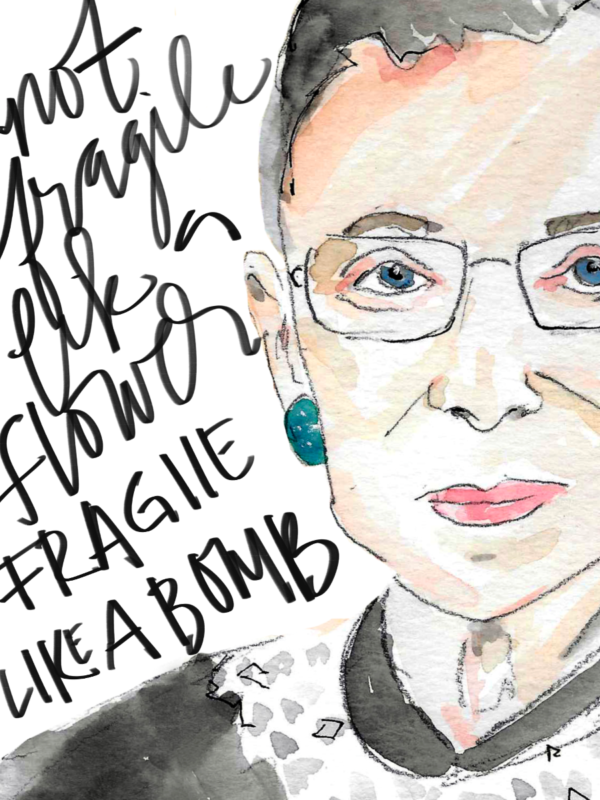 not
fragile
like a
flower
FRAGILE
LIKE A BOMB